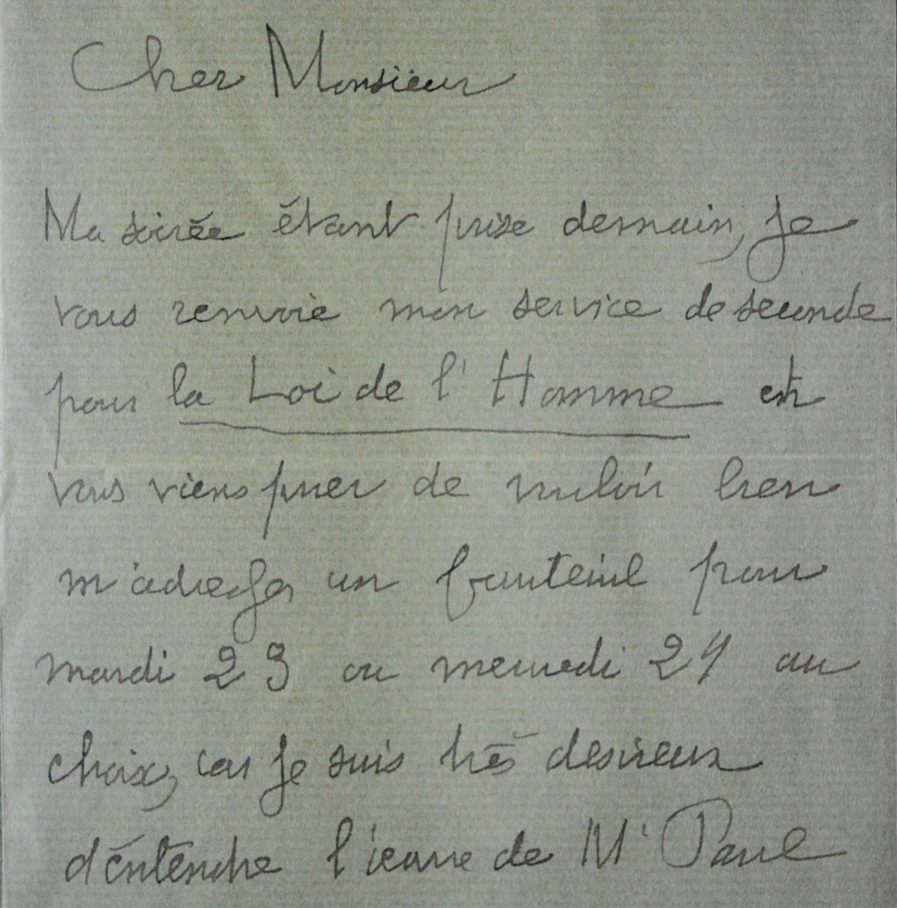 Cher Monsieur
Ma soirée étant prise demain, je
vous renvoie mon service de seconde
pour la Loi de l'Homme et
vous viens prier de vouloir bien
m'adresser un fauteuil pour
mardi 23 ou mercredi 24 au
choix, car je suis très desireux
d'entendre l'œuvre de Mr Paul